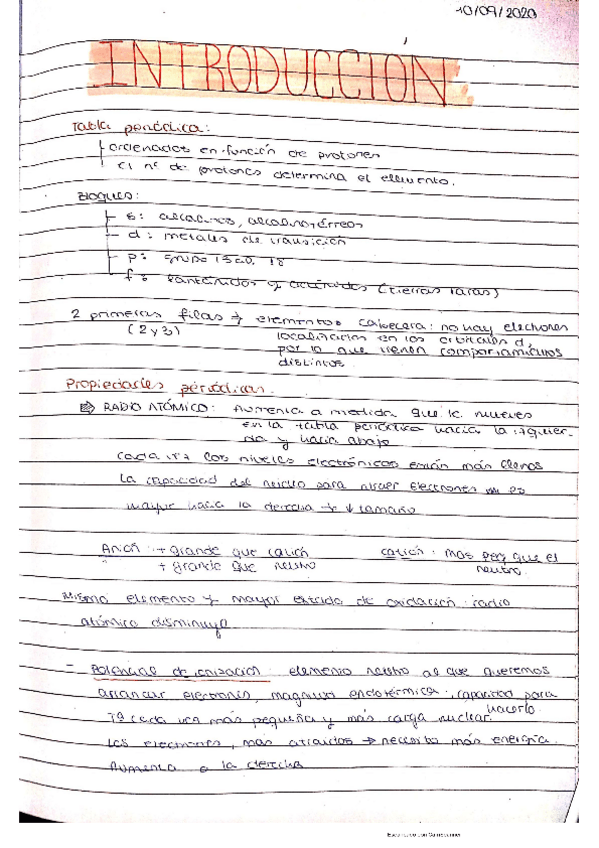 10/09/2020
INTRODUCCIÓN
Tabla periódica:
ordenados en función de protones
el nº de protones determina el elemento.
Bloques:
s: alcalinos, alcalinotérreos
d: metales de transición
p: grupo 13 al 18
f: lantánidos y actínidos (tierras raras)
2 primeras filas → elementos cabecera: no hay electrones
(2 y 3) localizados en los orbitales d,
por lo que tienen comportamientos
distintos.
Propiedades periódicas.
RADIO ATÓMICO: Aumenta a medida que te mueves
en la tabla periódica hacia la izquier-
da y hacia abajo
cada vez los niveles electrónicos están más llenos
La capacidad del núcleo para atraer electrones es
mayor hacia la derecha → ↓ tamaño
Anión: + grande que catión catión: más peq que el
+ grande que neutro neutro.
Mismo elemento y mayor estado de oxidación: radio
atómico disminuye
- Potencial de ionización: elemento neutro al que queremos
arrancar electrones, magnitud endotérmica, capacidad para
hacerlo.
cada vez más pequeña y más carga nuclear.
Los electrones, más atraídos → necesito más energía.
Aumenta a la derecha
Escaneado con CamScanner